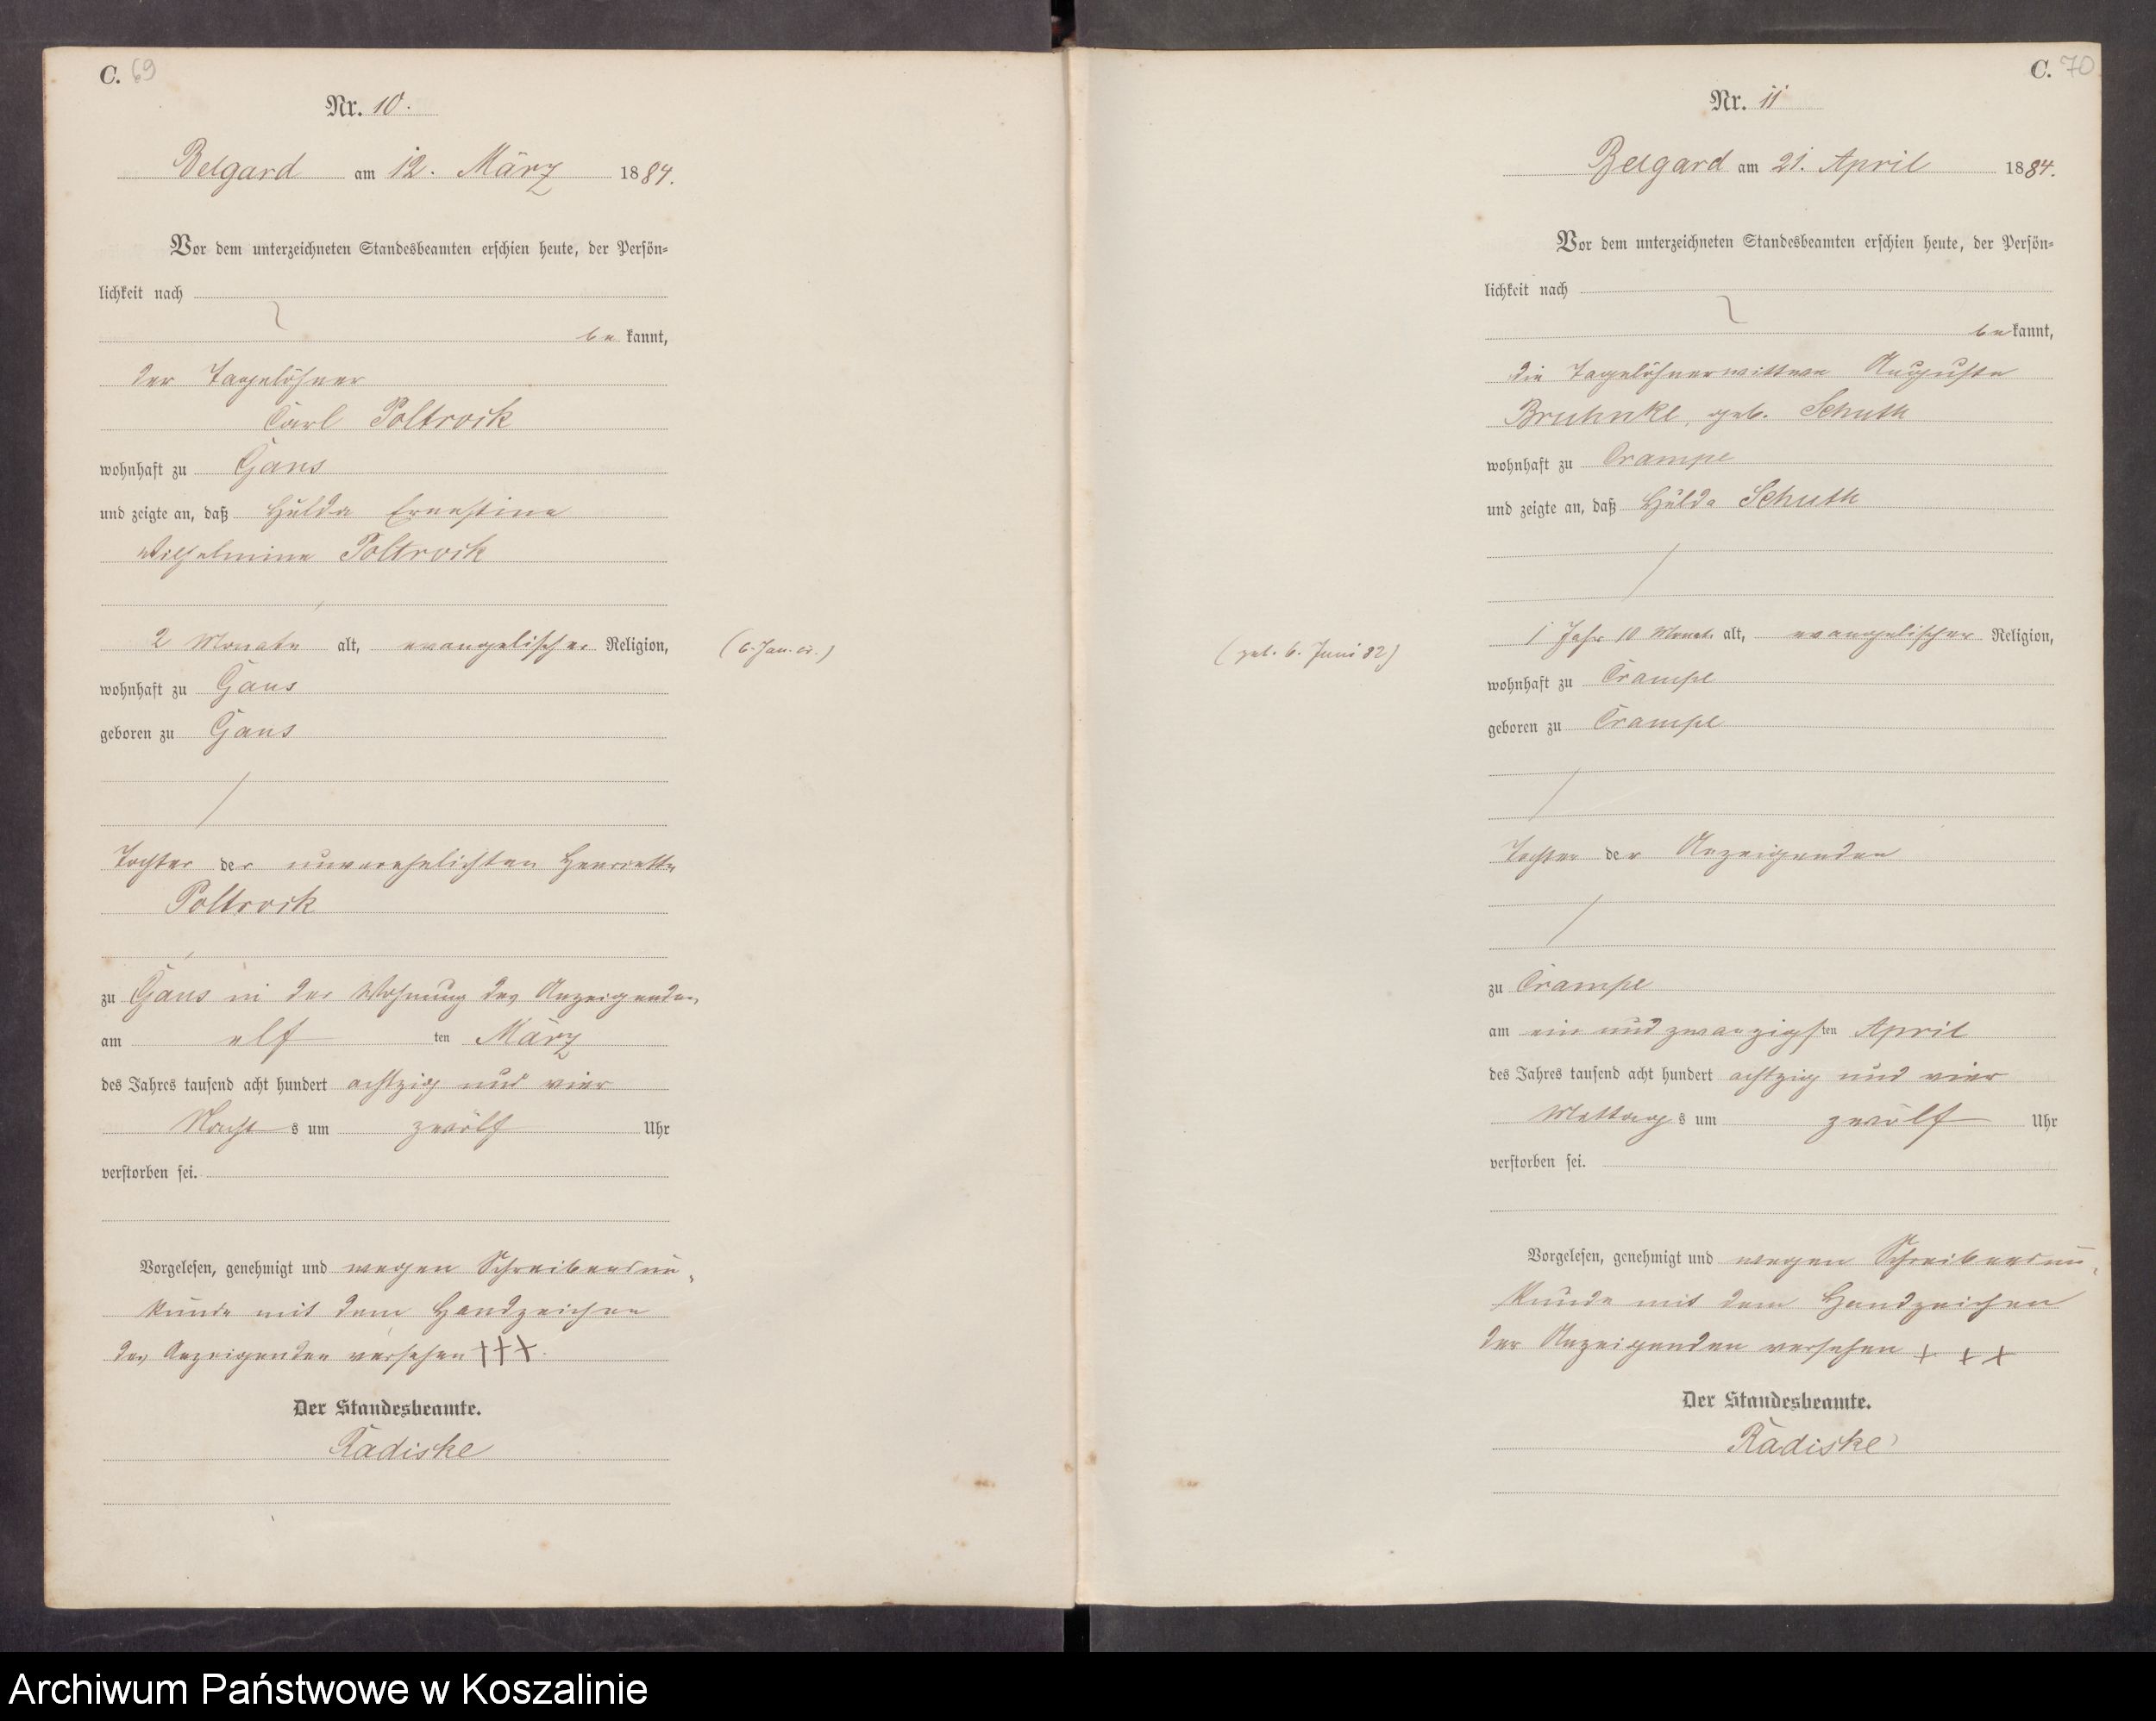 C. 69
Nr. 10.
Belgard am 12. März 1884.
Vor dem unterzeichneten Standesbeamten erschien heute, der Persön-
lichkeit nach
bekannt,
der Tagelöhner
Carl Poltrock
wohnhaft zu Gans
und zeigte an, daß Hulda Ernestine
Wilhelmine Poltrock
2 Monate alt, evangelischer Religion,
(6. Jan. cr.)
wohnhaft zu Gans
geboren zu Gans
Tochter der unverehelichten Henriette
Poltrock
zu Gans in der Wohnung des Anzeigenden
am elf ten März
des Jahres tausend acht hundert achtzig und vier
Nachts um zwölf Uhr
verstorben sei.
Vorgelesen, genehmigt und wegen Schreibensun-
kunde mit dem Handzeichen
des Anzeigenden versehen +++.
Der Standesbeamte.
Radiske
C. 70
Nr. 11
Belgard am 21. April 1884.
Vor dem unterzeichneten Standesbeamten erschien heute, der Persön-
lichkeit nach
bekannt,
die Tagelöhnerwittwe Auguste
Bruhnke, geb. Schuth
wohnhaft zu Crampe
und zeigte an, daß Hulda Schuth
1 Jahr 10 Monat. alt, evangelischer Religion,
(geb. 6. Juni 82)
wohnhaft zu Crampe
geboren zu Crampe
Tochter der Anzeigenden
zu Crampe
am ein und zwanzigsten April
des Jahres tausend acht hundert achtzig und vier
Mittags um zwölf Uhr
verstorben sei.
Vorgelesen, genehmigt und wegen Schreibensun-
kunde mit dem Handzeichen
der Anzeigenden versehen + + +
Der Standesbeamte.
Radiske
Archiwum Państwowe w Koszalinie